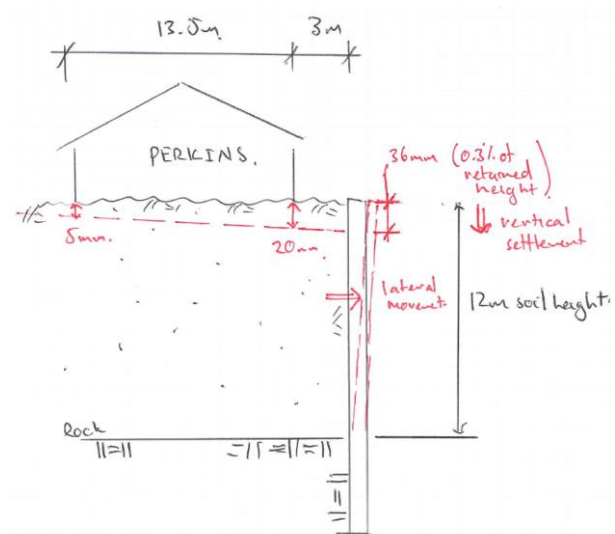 13.5m
3m
PERKINS.
36mm (0.3% of
retained
height)
vertical
settlement
5mm.
20mm
lateral
movement
12m soil height
Rock